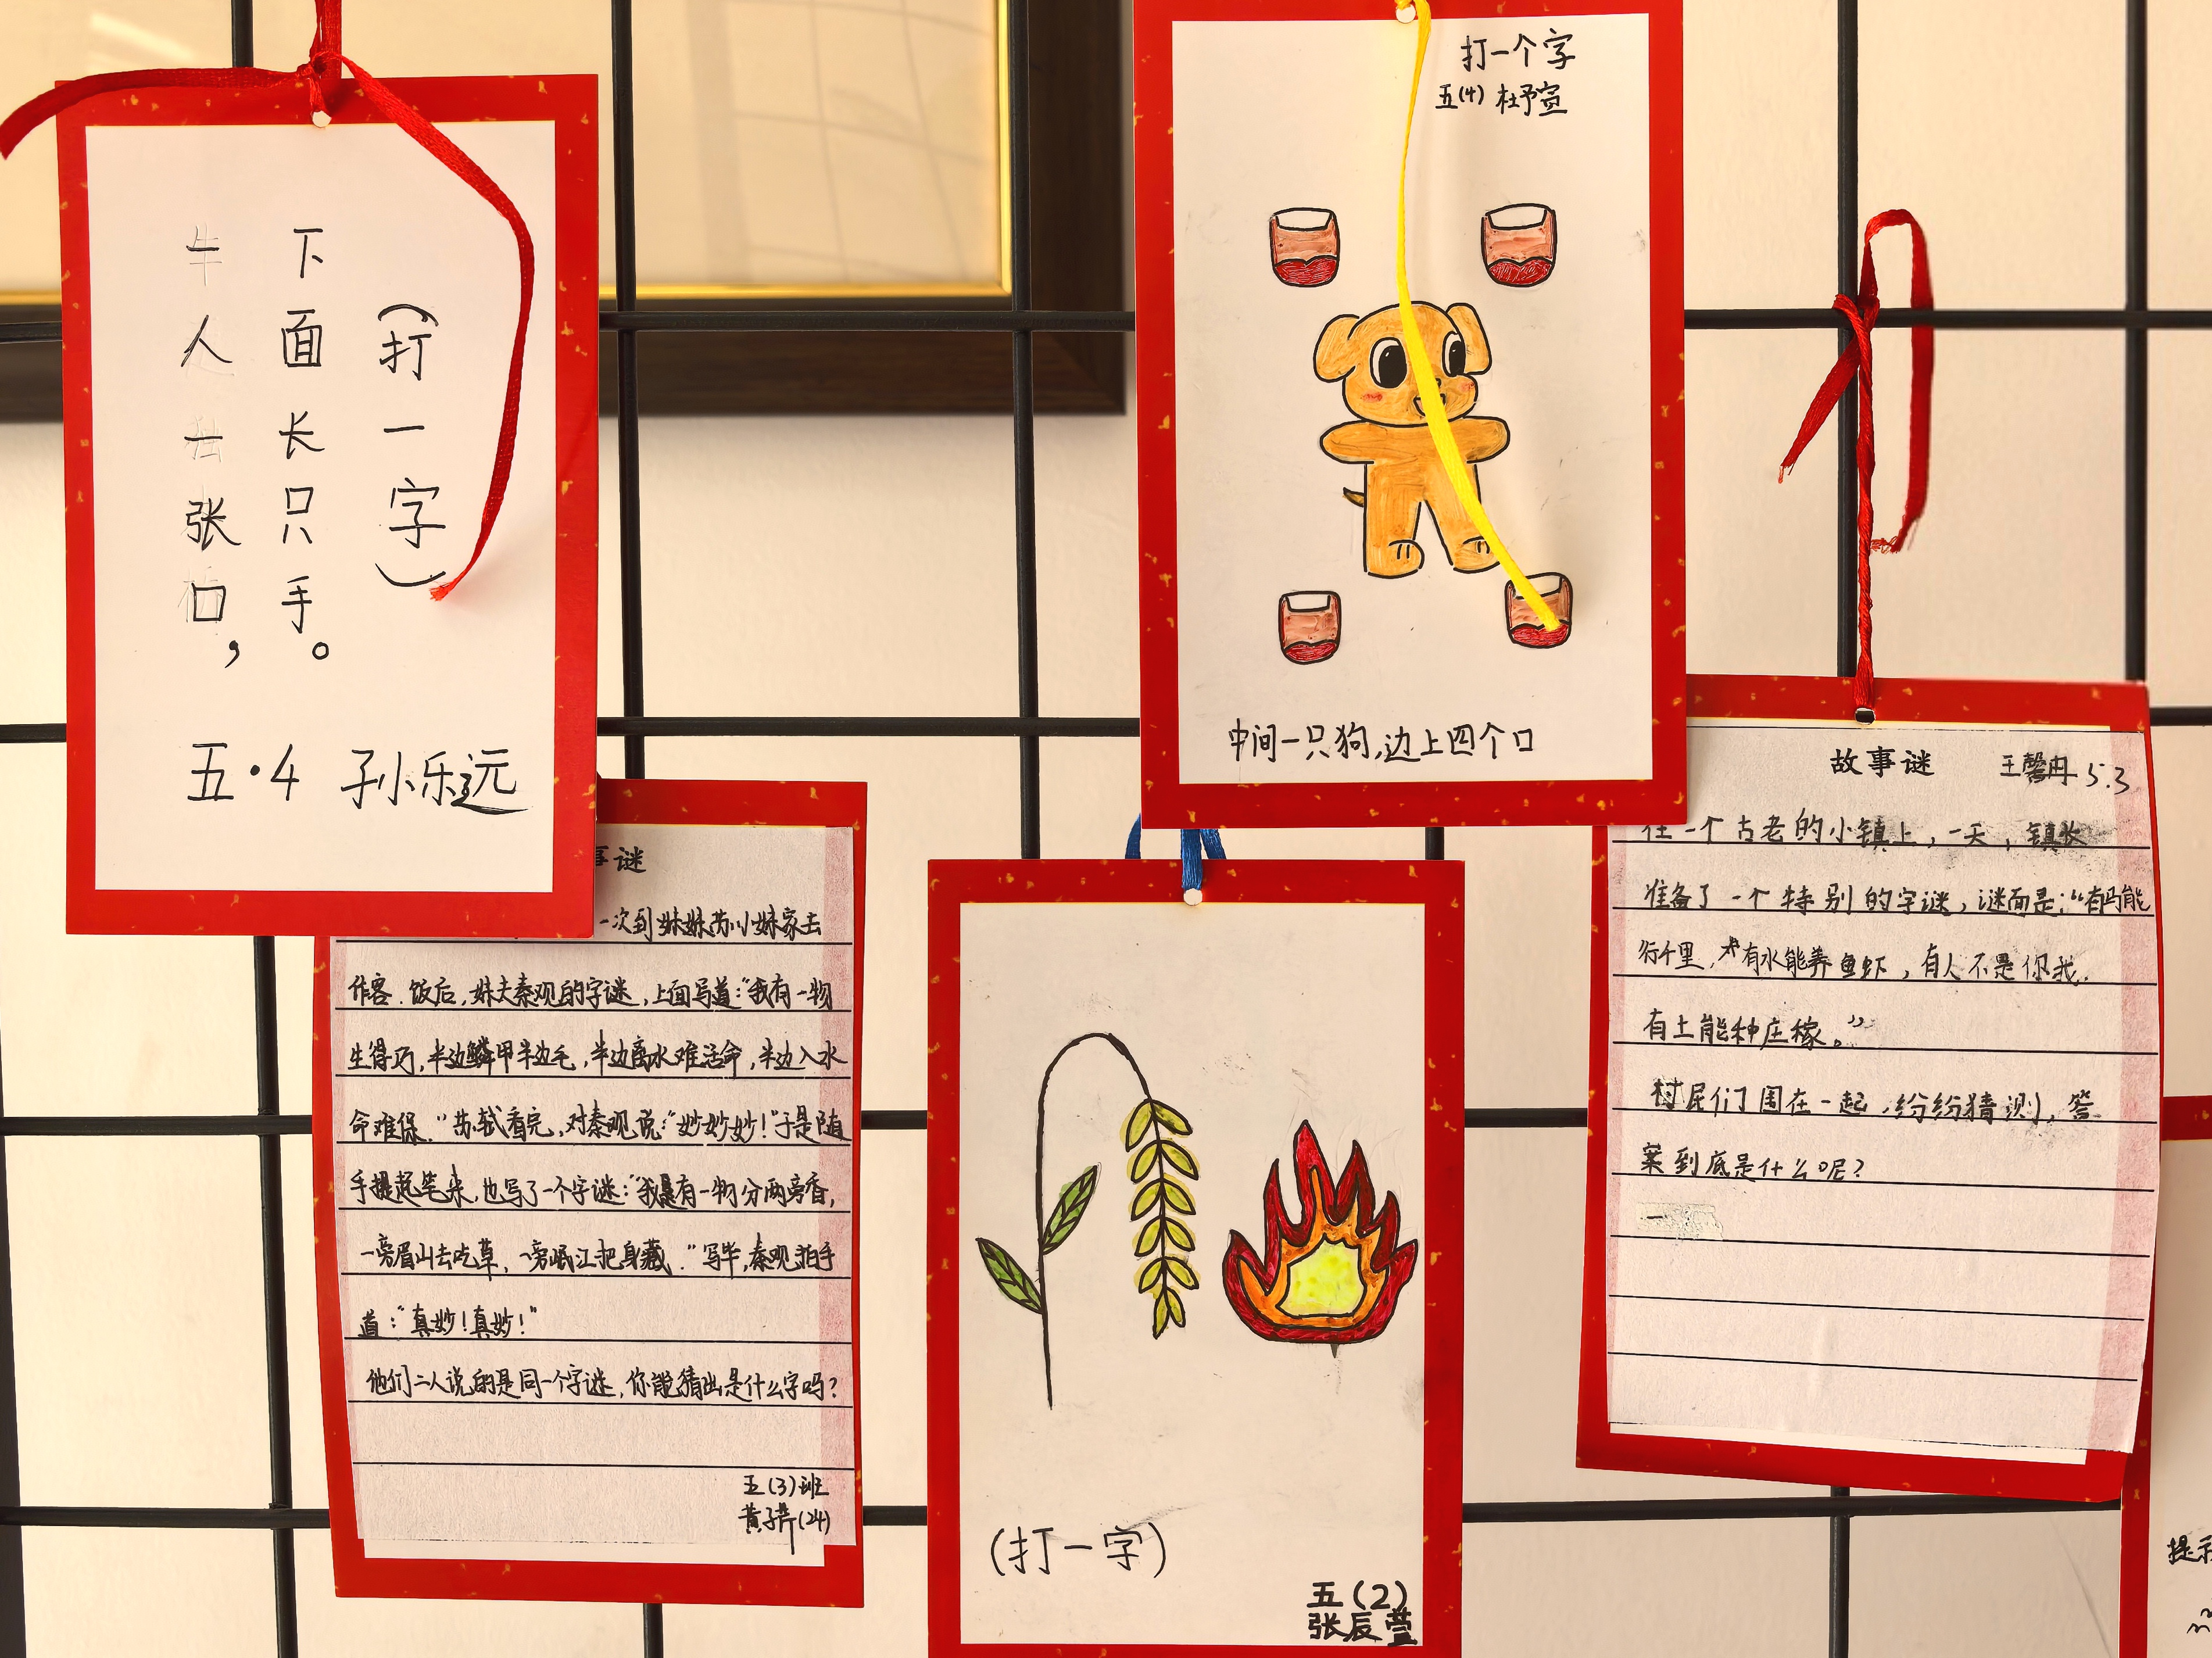 一人一张口，
下面长只手。
（打一字）
五·4 孙乐远
打一个字
五(4) 杜予宣
中间一只狗,边上四个口
事谜
一次到妹妹苏小妹家去
作客.饭后,妹夫秦观的字谜,上面写道:"我有一物
生得巧,半边鳞甲半边毛,半边离水难活命,半边入水
命难保."苏轼看完,对秦观说:"妙妙妙!"于是随
手提起笔来,也写了一个字谜:"我有一物分两旁香,
一旁眉山去吃草,一旁岷江把身藏."写毕,秦观拍手
道:"真妙!真妙!"
他们二人说的是同一个字谜,你能猜出是什么字吗?
五(3)班
黄子(24)
(打一字)
五(2)
张辰萱
故事谜 王馨冉 5.3
在一个古老的小镇上,一天,镇长
准备了一个特别的字谜,谜面是:"有马能
行千里,有水能养鱼虾,有人不是你我.
有土能种庄稼。"
村民们围在一起,纷纷猜测,答
案到底是什么呢?
提示